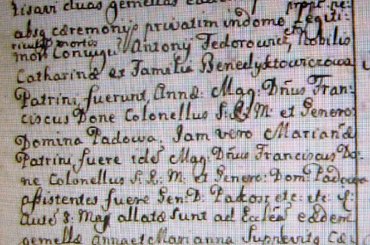 duas gemellas
absq ceremonijs privatim in domo Legiti:
riculo mortis
mor: Coniugu Antony Fedorowicz et Nobilis
Catharina ex Familia Benedyktowiczowa
Patrini fuerunt Annæ Mag: Dñus Fran:
ciscus Done Colonellus S: R: M: et Genero:
Domina Padowa, Jam vero Mariannæ
Patrini fuere idem Mag: Dñus Franciscus Do:
ne Colonellus S: R: M: et Genere: Dom: Padowa
assistentes fuere Gen: D: Pakosz etc: etc:
8: May allatæ sunt ad Ecclesiam eædem
gemellæ Anna et Marianna